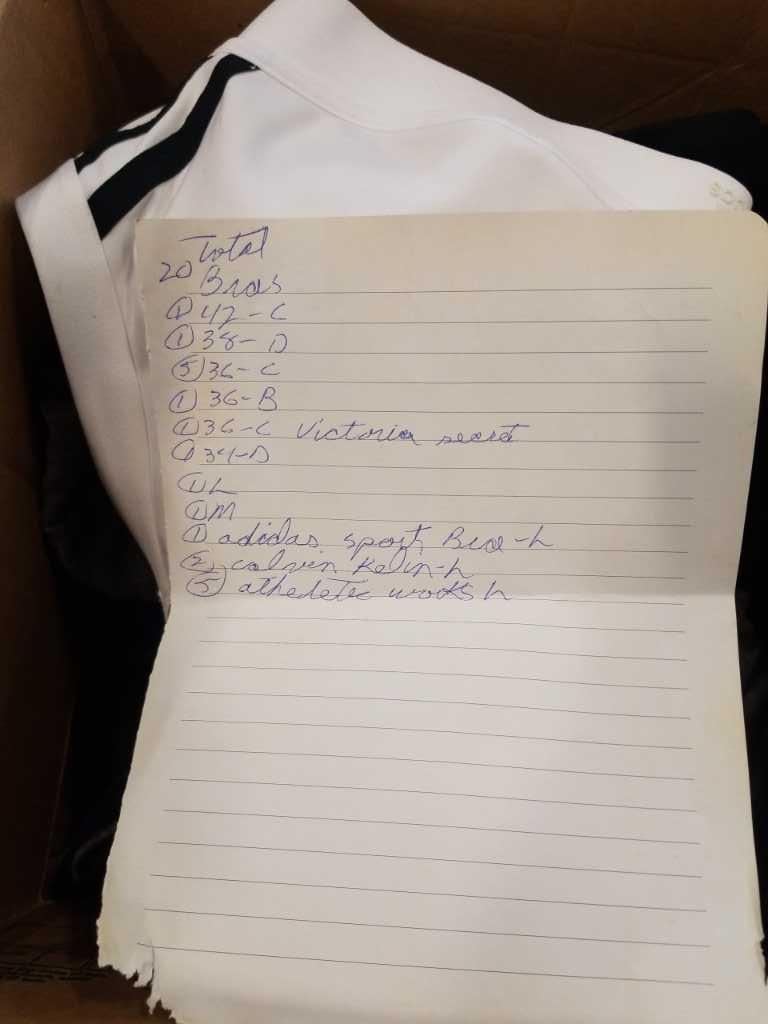 Total
20 Bras
① 42-C
① 38-D
⑤ 36-C
① 36-B
① 36-C Victoria secret
① 34-D
① L
① M
① adidas sport Bra-L
② calvin Kelin-L
⑤ athedetic works L